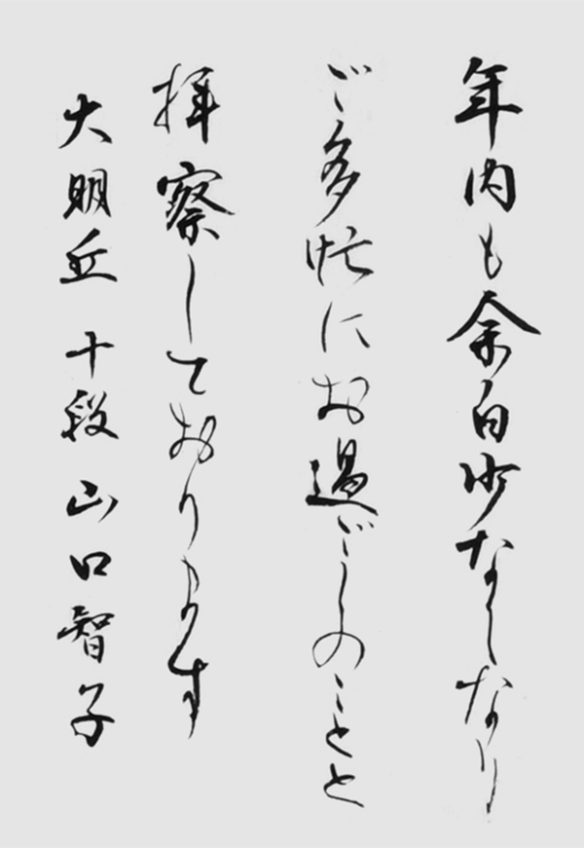 年内も余白少なくなり
ご多忙にお過ごしのことと
拝察しております
大明丘 十段 山口智子